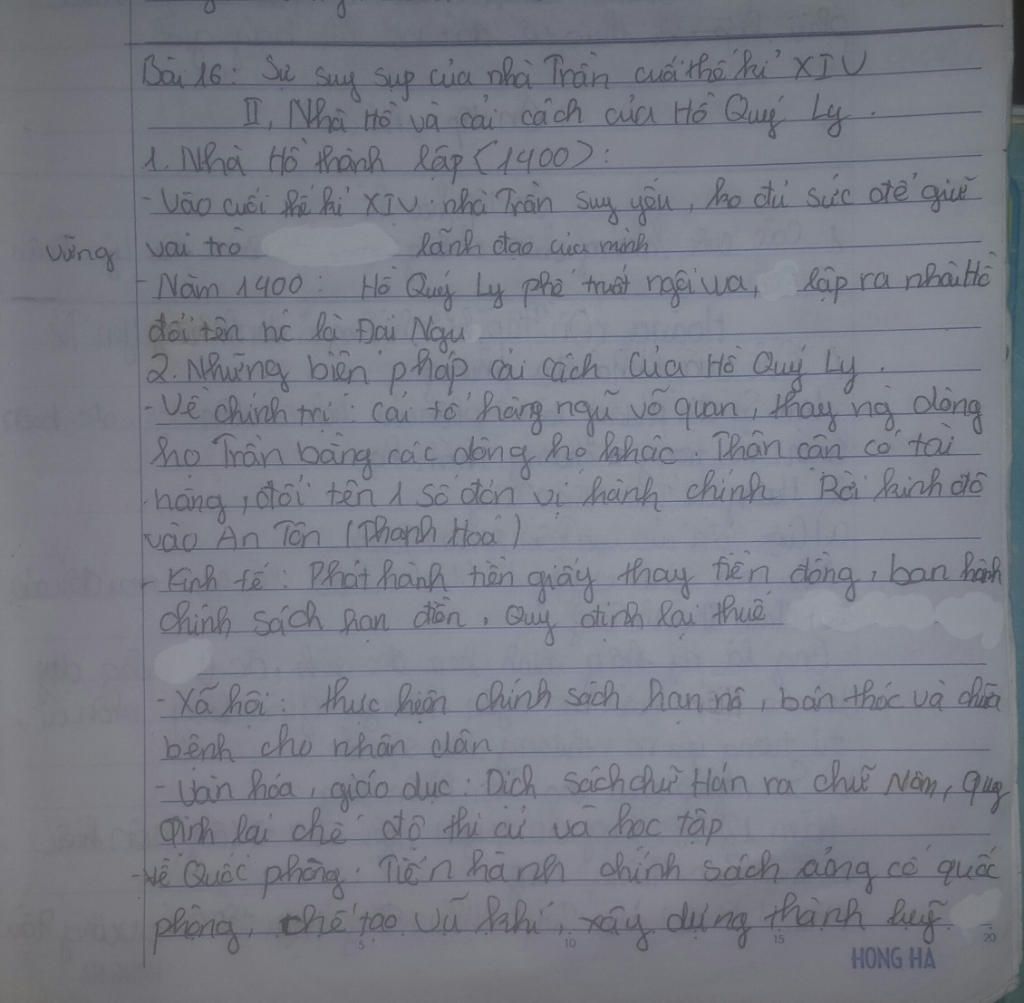 Bài 16: Sự suy sụp của nhà Trần cuối thế kỉ XIV
II, Nhà Hồ và cải cách của Hồ Quý Ly.
1. Nhà Hồ thành lập (1400):
- Vào cuối thế kỉ XIV nhà Trần suy yếu, ko đủ sức để giữ
vững vai trò lãnh đạo của mình
- Năm 1400: Hồ Quý Ly phế truất ngôi vua, lập ra nhà Hồ
đổi tên nc là Đại Ngu
2. Những biện pháp cải cách của Hồ Quý Ly.
- Về chính trị: cải tổ hàng ngũ võ quan, thay ng dòng
họ Trần bằng các dòng họ khác. Thân cận có tài
năng, đổi tên 1 số đơn vị hành chính Rời kinh đô
vào An Tôn (Thanh Hoá)
- Kinh tế: Phát hành tiền giấy thay tiền đồng, ban hành
chính sách hạn điền, Quy định lại thuế
- Xã hội: thực hiện chính sách hạn nô, bán thóc và chữa
bệnh cho nhân dân
- Văn hóa, giáo dục: Dịch sách chữ Hán ra chữ Nôm, quy
định lại chế độ thi cử và học tập
- Về Quốc phòng: Tiến hành chính sách củng cố quốc
phòng, chế tạo vũ khí, xây dựng thành luỹ
5 10 15 20
HONG HA